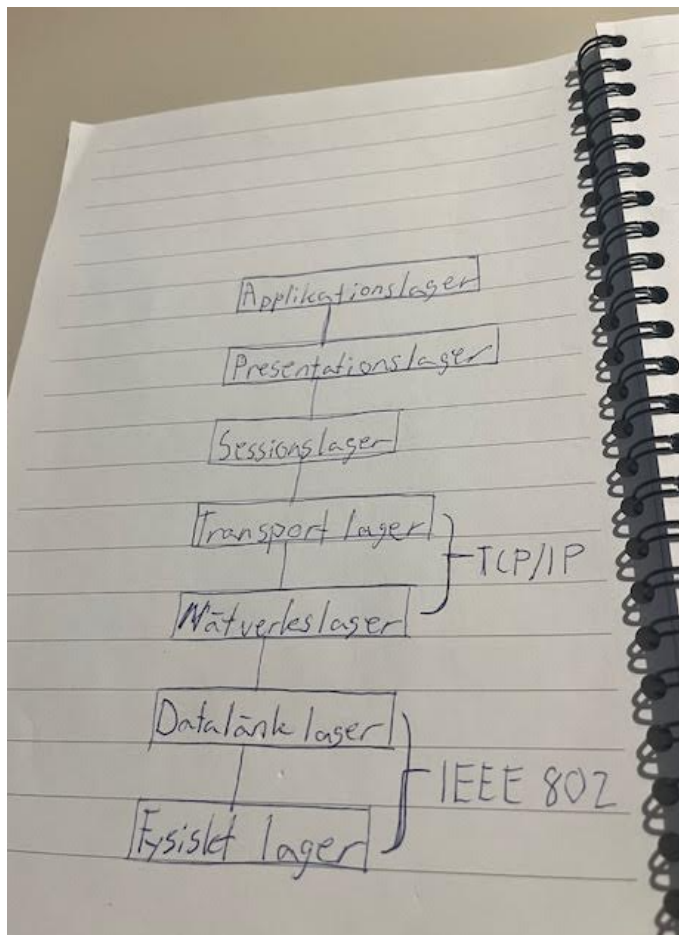 Applikationslager
Presentationslager
Sessionslager
Transport lager
TCP/IP
Nätverkslager
Datalänk lager
IEEE 802
Fysiskt lager